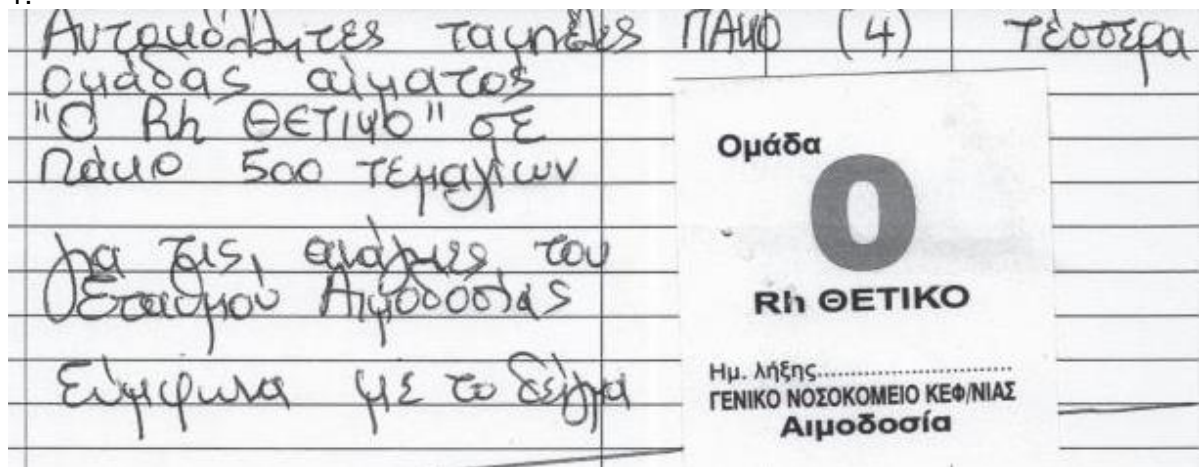 Αυτοκόλλητες ταμπέλες ΠΑΚΟ (4) τέσσερα
ομάδας αίματος
"Ο Rh ΘΕΤΙΚΟ" σε
πάκο 500 τεμαχίων
για τις ανάγκες του
Σταθμού Αιμοδοσίας
Σύμφωνα με το δείγμα
Ομάδα
Ο
Rh ΘΕΤΙΚΟ
Ημ. λήξης............................
ΓΕΝΙΚΟ ΝΟΣΟΚΟΜΕΙΟ ΚΕΦ/ΝΙΑΣ
Αιμοδοσία